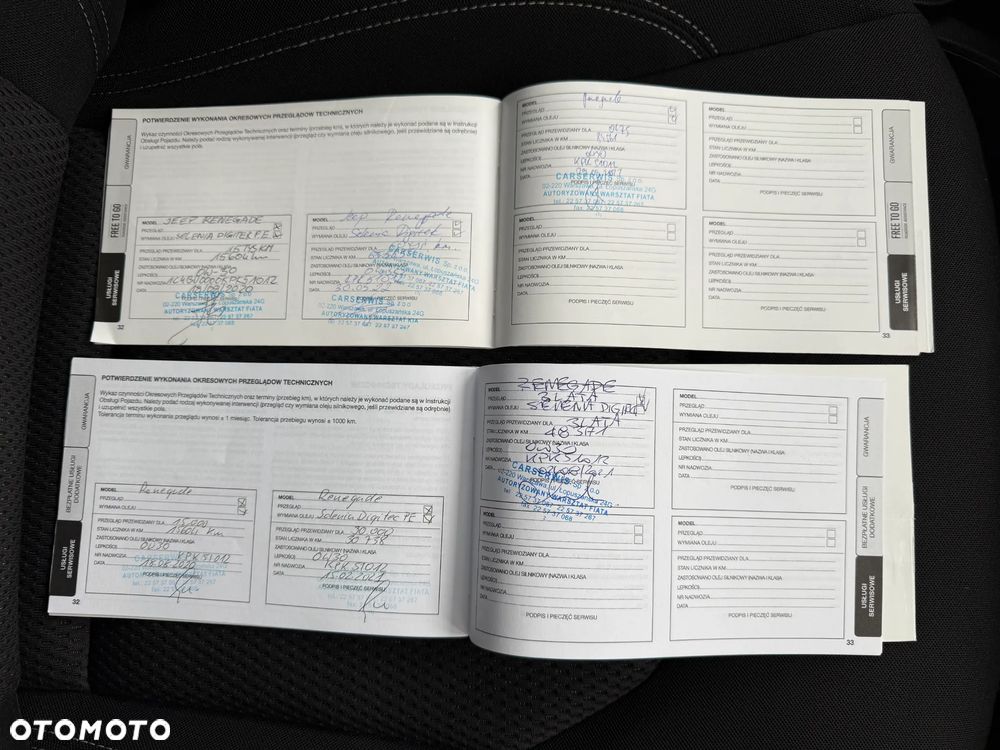 POTWIERDZENIE WYKONANIA OKRESOWYCH PRZEGLĄDÓW TECHNICZNYCH
Wykaz czynności Okresowych Przeglądów Technicznych oraz terminy (przebieg km), w których należy je wykonywać podane są w Instrukcji
Obsługi Pojazdu. Należy podać rodzaj wykonywanej interwencji (przegląd czy wymiana oleju silnikowego, jeśli przewidziane są odrębnie)
i uzupełnić wszystkie pola.
GWARANCJA
FREE TO GO
USŁUGI
SERWISOWE
MODEL JEEP RENEGADE
PRZEGLĄD
WYMIANA OLEJU SELENIA DIGITEK P.E.
PRZEGLĄD PRZEWIDZIANY DLA
STAN LICZNIKA W KM 15604 km
ZASTOSOWANO OLEJ SILNIKOWY (NAZWA I KLASA
LEPKOŚCI) 0W-30
NR NADWOZIA
DATA
CARSERWIS Sp. z o.o.
02-220 Warszawa, ul. Łopuszańska 24G
AUTORYZOWANY WARSZTAT FIATA
tel.: 22 57 37 067, 22 57 37 267
fax: 22 57 37 068
32
MODEL Jeep Renegade
PRZEGLĄD
WYMIANA OLEJU Selenia
PRZEGLĄD PRZEWIDZIANY DLA
STAN LICZNIKA W KM
NR NADWOZIA
DATA 30.05.22
PODPIS I PIECZĘĆ SERWISU
CARSERWIS Sp. z o.o.
02-220 Warszawa, ul. Łopuszańska 24G
AUTORYZOWANY WARSZTAT KIA
tel.: 22 57 37 067, 22 57 37 267
fax: 22 57 37 068
MODEL
PRZEGLĄD
WYMIANA OLEJU
PRZEGLĄD PRZEWIDZIANY DLA
STAN LICZNIKA W KM
ZASTOSOWANO OLEJ SILNIKOWY (NAZWA I KLASA
LEPKOŚCI)
NR NADWOZIA
DATA
PODPIS I PIECZĘĆ SERWISU
CARSERWIS Sp. z o.o.
02-220 Warszawa, ul. Łopuszańska 24G
AUTORYZOWANY WARSZTAT FIATA
tel.: 22 57 37 067, 22 57 37 267
fax: 22 57 37 068
MODEL
PRZEGLĄD
WYMIANA OLEJU
PRZEGLĄD PRZEWIDZIANY DLA
STAN LICZNIKA W KM
ZASTOSOWANO OLEJ SILNIKOWY (NAZWA I KLASA
LEPKOŚCI)
NR NADWOZIA
DATA
PODPIS I PIECZĘĆ SERWISU
MODEL
PRZEGLĄD
WYMIANA OLEJU
PRZEGLĄD PRZEWIDZIANY DLA
STAN LICZNIKA W KM
ZASTOSOWANO OLEJ SILNIKOWY (NAZWA I KLASA
LEPKOŚCI)
NR NADWOZIA
DATA
PODPIS I PIECZĘĆ SERWISU
MODEL
PRZEGLĄD
WYMIANA OLEJU
PRZEGLĄD PRZEWIDZIANY DLA
STAN LICZNIKA W KM
ZASTOSOWANO OLEJ SILNIKOWY (NAZWA I KLASA
LEPKOŚCI)
NR NADWOZIA
DATA
PODPIS I PIECZĘĆ SERWISU
GWARANCJA
FREE TO GO
USŁUGI
SERWISOWE
33
POTWIERDZENIE WYKONANIA OKRESOWYCH PRZEGLĄDÓW TECHNICZNYCH
Wykaz czynności Okresowych Przeglądów Technicznych oraz terminy (przebieg km), w których należy je wykonywać podane są w Instrukcji
Obsługi Pojazdu. Należy podać rodzaj wykonywanej interwencji (przegląd czy wymiana oleju silnikowego, jeśli przewidziane są odrębnie)
i uzupełnić wszystkie pola.
Tolerancja terminu wykonania przeglądu wynosi ± 1 miesiąc. Tolerancja przebiegu wynosi ± 1000 km.
GWARANCJA
BEZPŁATNE USŁUGI
DODATKOWE
USŁUGI
SERWISOWE
MODEL Renegade
PRZEGLĄD
WYMIANA OLEJU
PRZEGLĄD PRZEWIDZIANY DLA 15000
STAN LICZNIKA W KM
ZASTOSOWANO OLEJ SILNIKOWY (NAZWA I KLASA
LEPKOŚCI) 0W30
NR NADWOZIA KPK51012
DATA
PODPIS I PIECZĘĆ SERWISU
32
MODEL Renegade
PRZEGLĄD
WYMIANA OLEJU Selenia Digitec PE
PRZEGLĄD PRZEWIDZIANY DLA 30.000
STAN LICZNIKA W KM 30 738
ZASTOSOWANO OLEJ SILNIKOWY (NAZWA I KLASA
LEPKOŚCI) 0W30
NR NADWOZIA KPK51012
DATA 15.02.2021
PODPIS I PIECZĘĆ SERWISU
MODEL RENEGADE
PRZEGLĄD 3 LATA
WYMIANA OLEJU SELENIA DIGITEK
PRZEGLĄD PRZEWIDZIANY DLA 3 LATA
STAN LICZNIKA W KM 48371
ZASTOSOWANO OLEJ SILNIKOWY (NAZWA I KLASA
LEPKOŚCI) 0W30
NR NADWOZIA KPK51012
DATA
CARSERWIS Sp. z o.o.
02-220 Warszawa, ul. Łopuszańska 24G
AUTORYZOWANY WARSZTAT FIATA
tel.: 22 57 37 067, 22 57 37 267
fax: 22 57 37 068
MODEL
PRZEGLĄD
WYMIANA OLEJU
PRZEGLĄD PRZEWIDZIANY DLA
STAN LICZNIKA W KM
ZASTOSOWANO OLEJ SILNIKOWY (NAZWA I KLASA
LEPKOŚCI)
NR NADWOZIA
DATA
PODPIS I PIECZĘĆ SERWISU
MODEL
PRZEGLĄD
WYMIANA OLEJU
PRZEGLĄD PRZEWIDZIANY DLA
STAN LICZNIKA W KM
ZASTOSOWANO OLEJ SILNIKOWY (NAZWA I KLASA
LEPKOŚCI)
NR NADWOZIA
DATA
PODPIS I PIECZĘĆ SERWISU
MODEL
PRZEGLĄD
WYMIANA OLEJU
PRZEGLĄD PRZEWIDZIANY DLA
STAN LICZNIKA W KM
ZASTOSOWANO OLEJ SILNIKOWY (NAZWA I KLASA
LEPKOŚCI)
NR NADWOZIA
DATA
PODPIS I PIECZĘĆ SERWISU
GWARANCJA
BEZPŁATNE USŁUGI
DODATKOWE
USŁUGI
SERWISOWE
33
OTOMOTO